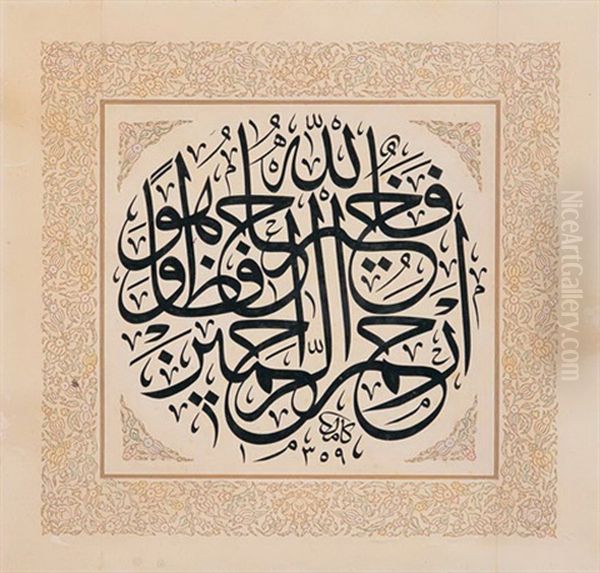 فَاللّٰهُ خَيْرٌ حَافِظًا وَهُوَ أَرْحَمُ الرَّاحِمِينَ
كامل
١٣٥٩
NiceArtGallery.com